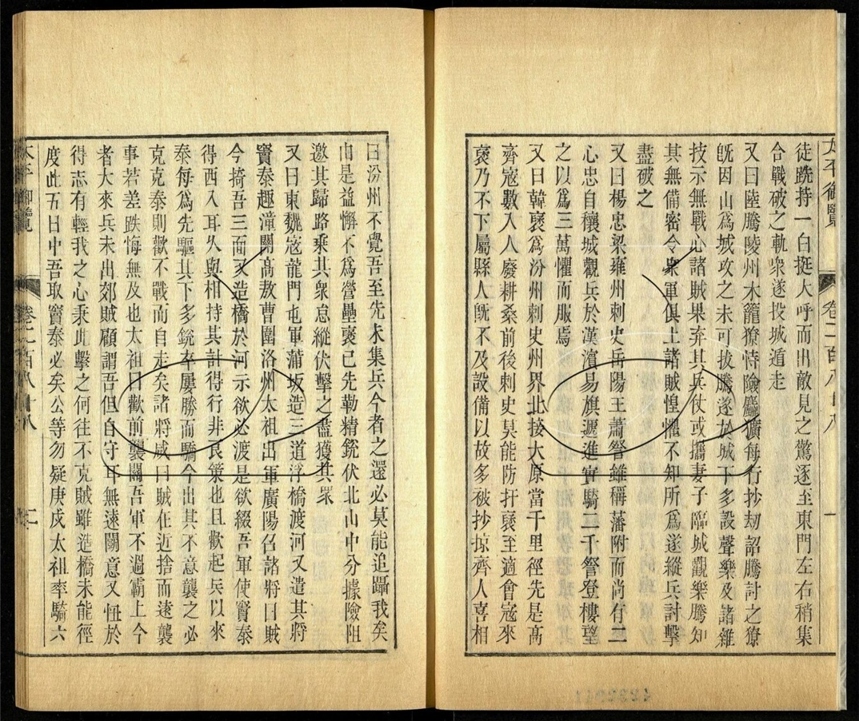 太平御覽
卷二百八十八
一
徒跣持一白挺大呼而出敵見之驚逐至東門左右稍集
合戰破之軌衆遂投城遁走
又曰陸騰陵州木籠獠恃險麤獷每行抄刼詔騰討之獠
旣因山爲城攻之未可拔騰遂於城下多設聲樂及諸雜
技示無戰心諸賊果弃其兵仗或攜妻子臨城觀樂騰知
其無備密令衆軍俱上諸賊惶懼不知所爲遂縱兵討擊
盡破之
又曰楊忠梁雍州刺史岳陽王蕭詧雖稱藩附而尚有二
心忠自穰城觀兵於漢濱易旗遞進實騎二千詧登樓望
之以爲三萬懼而服焉
又曰韓襃爲汾州刺史州界北接太原當千里徑先是髙
齊寇數入人廢耕桑前後刺史莫能防扞襃至適會寇來
襃乃不下屬縣人旣不及設備以故多被抄掠齊人喜相
曰汾州不覺吾至先未集兵今者之還必莫能追躡我矣
由是益懈不爲營壘襃已先勒精銳伏北山中分據險阻
邀其歸路乗其衆怠縱伏擊之盡獲其衆
又曰東魏寇龍門屯軍蒲坂造三道浮橋渡河又遣其將
竇泰趣潼關髙敖曹圍洛州太祖出軍廣陽召諸將曰賊
今掎吾三面又造橋於河示欲必渡是欲綴吾軍使竇泰
得西入耳久與相持其計得行非良策也且歡起兵以來
泰每爲先驅其下多銳卒屢勝而驕今出其不意襲之必
克克泰則歡不戰而自走矣諸將咸曰賊在近捨而逺襲
事若差跌悔無及也太祖曰歡前襲關吾軍不過霸上今
者大來兵未出郊賊顧謂吾但自守耳無逺鬭意又忸於
得志有輕我之心乗此擊之何往不克賊雖造橋未能徑
度此五日中吾取竇泰必矣公等勿疑庚戌太祖率騎六
太平御覽
卷二百八十八
二